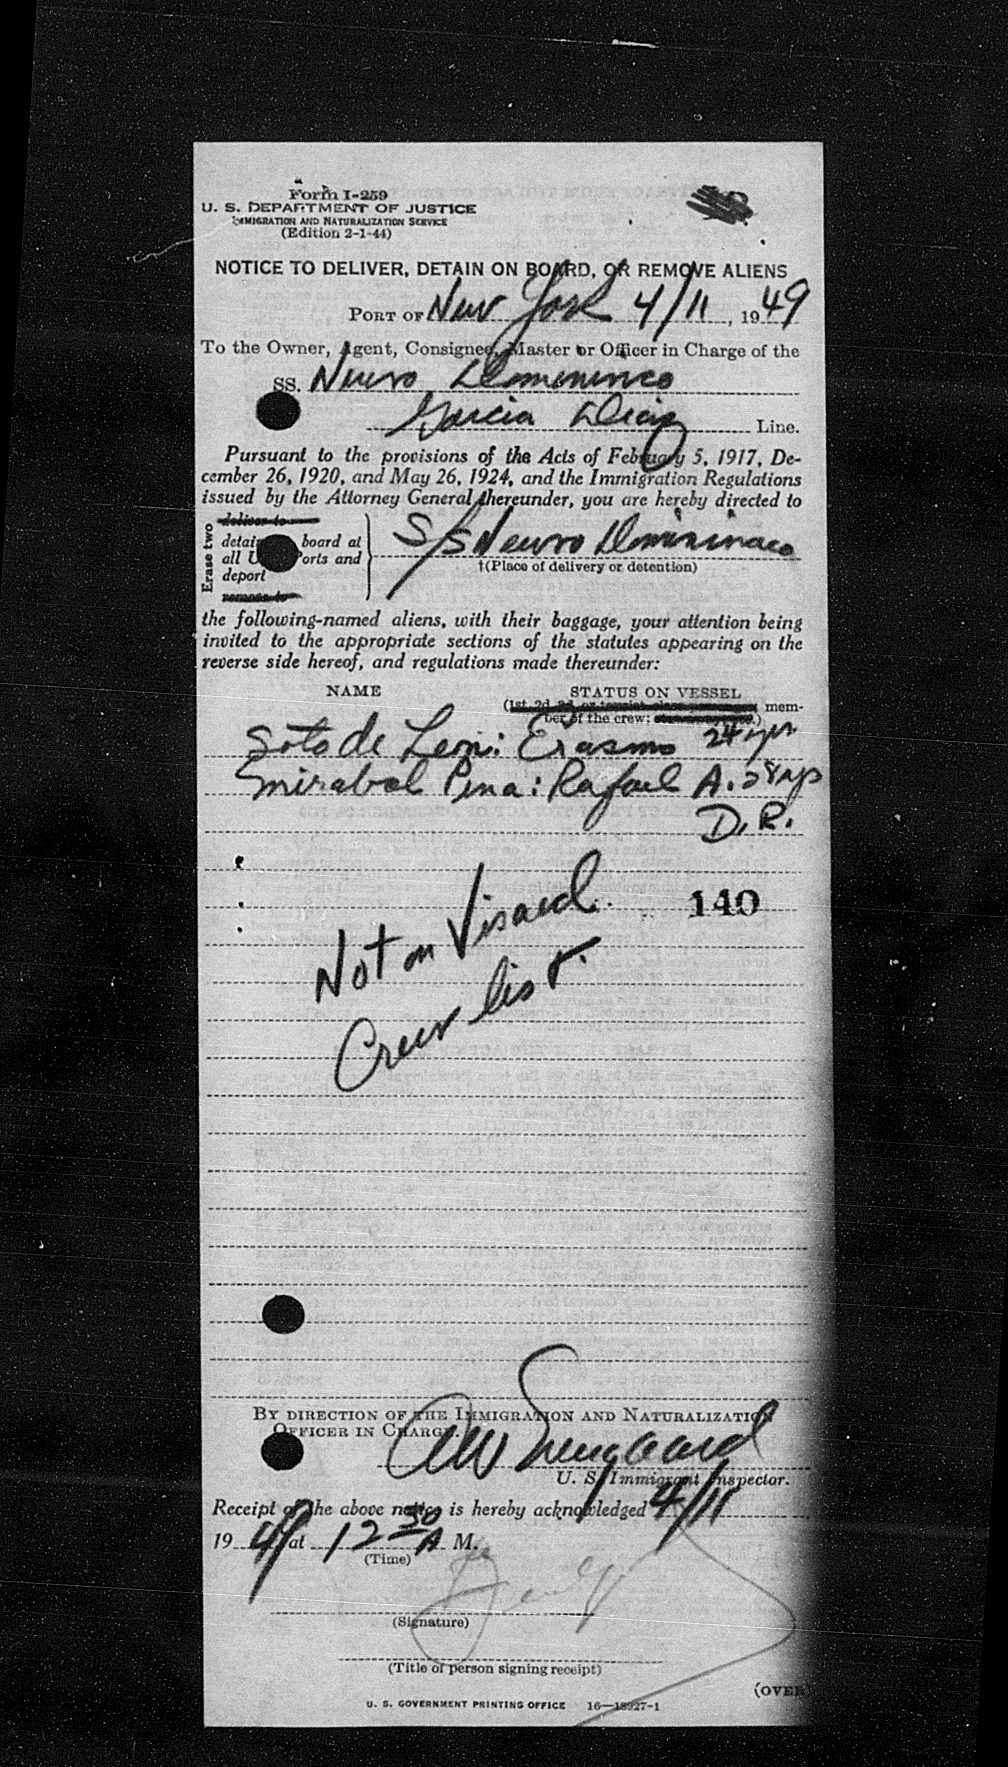 Form I-259
U. S. DEPARTMENT OF JUSTICE
IMMIGRATION AND NATURALIZATION SERVICE
(Edition 2-1-44)
NOTICE TO DELIVER, DETAIN ON BOARD, OR REMOVE ALIENS
PORT OF New York 4/11, 1949
To the Owner, Agent, Consignee, Master or Officer in Charge of the
SS. Nuevo Domininco
Garcia Diaz Line.
Pursuant to the provisions of the Acts of February 5, 1917, De-
cember 26, 1920, and May 26, 1924, and the Immigration Regulations
issued by the Attorney General thereunder, you are hereby directed to
Erase two
deliver to
detain board at
all U Ports and
deport
remove to
S/S Neuvo Domininaco
†(Place of delivery or detention)
the following-named aliens, with their baggage, your attention being
invited to the appropriate sections of the statutes appearing on the
reverse side hereof, and regulations made thereunder:
NAME STATUS ON VESSEL
(1st, 2d, 3d, or tourist class passenger, mem-
ber of the crew; .)
Soto de Leon: Erasmo 24 yrs
Mirabal Pena: Rafael A. 28 yrs
D. R.
140
Not on Visaed
Crew list.
BY DIRECTION OF THE IMMIGRATION AND NATURALIZATION
OFFICER IN CHARGE.
U. S. Immigrant Inspector.
Receipt of the above notice is hereby acknowledged 4/11
1949 at 12 30 A M.
(Time)
(Signature)
(Title of person signing receipt)
(OVER)
U. S. GOVERNMENT PRINTING OFFICE 16—18927-1